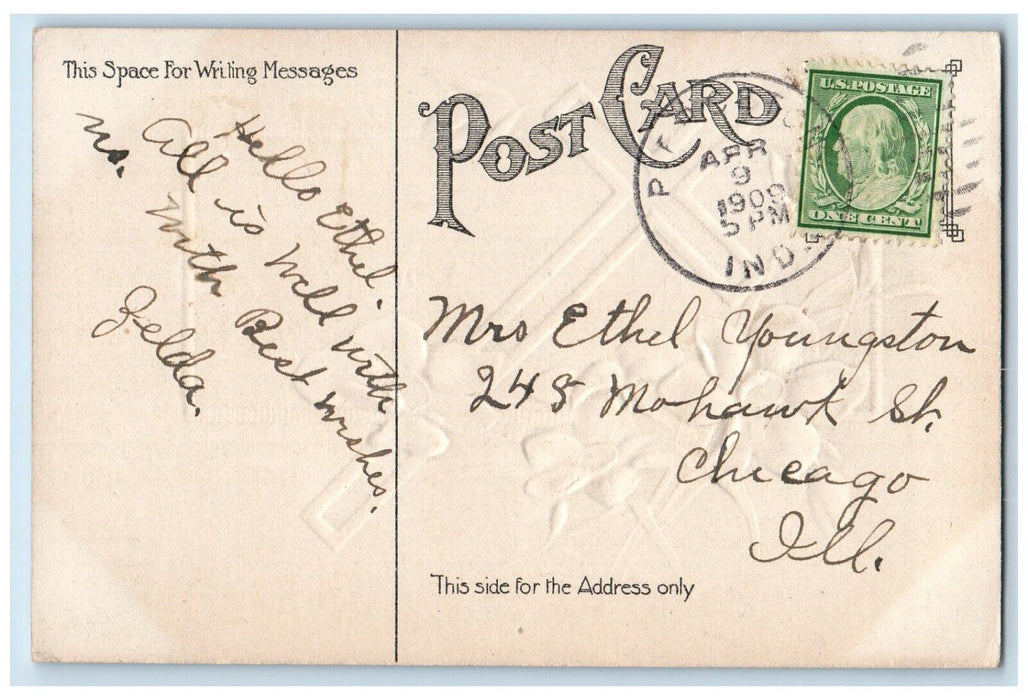 This Space For Writing Messages
Hello Ethel.
All is well with
us.
With Best wishes.
Zelda.
POST CARD
APR
9
1909
5 PM
IND.
U.S. POSTAGE
ONE CENT
Mrs Ethel Youngston
245 Mohawk St.
Chicago
Ill.
This side for the Address only